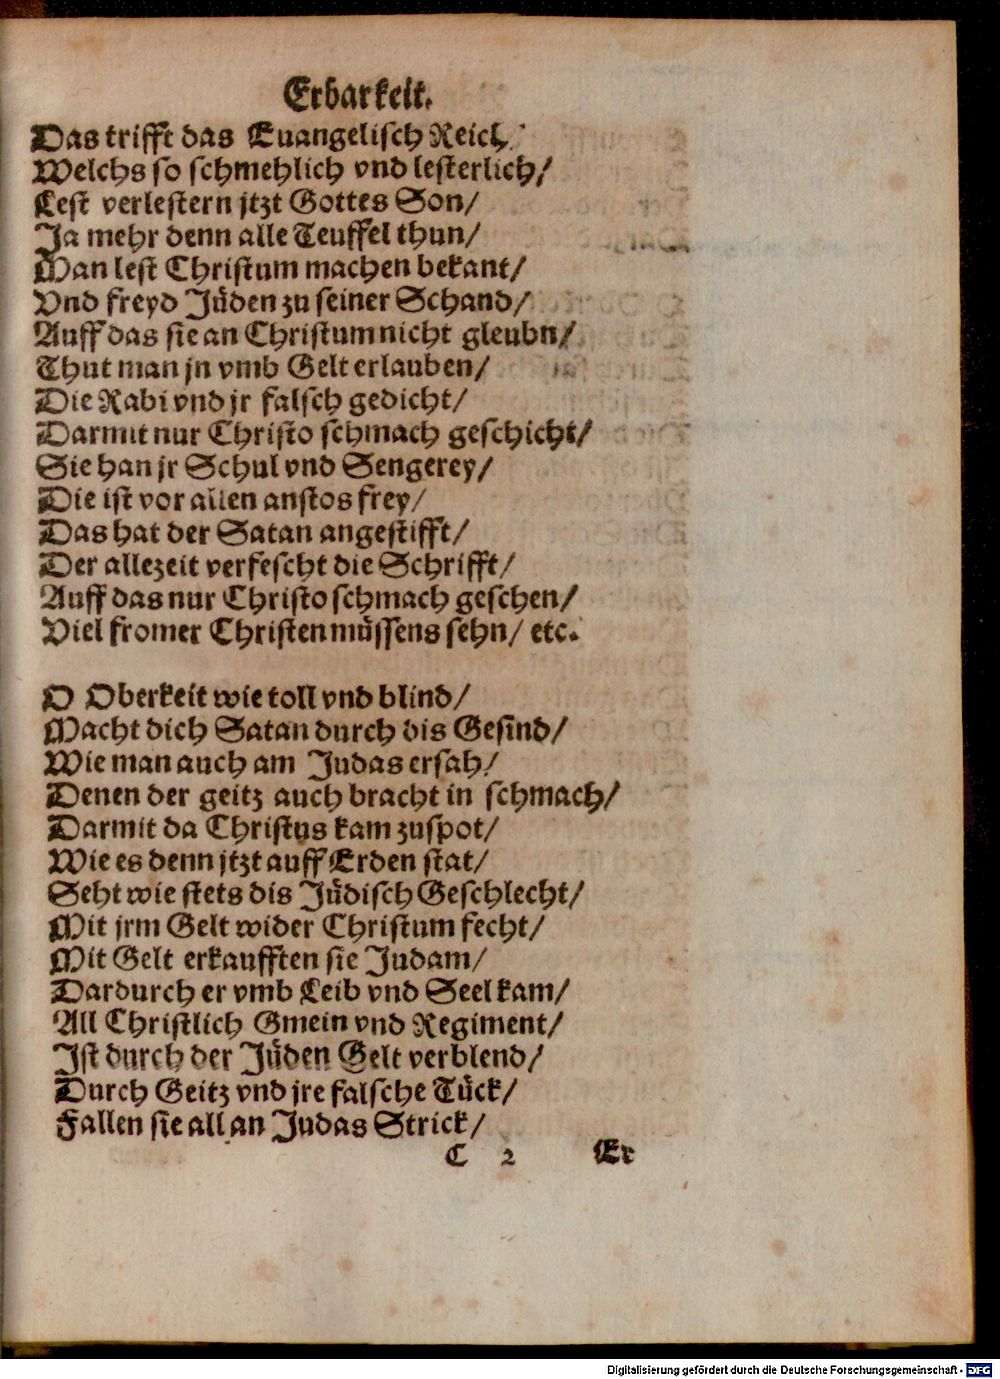 Erbarkeit.
Das trifft das Euangelisch Reich
Welchs so schmehlich vnd lesterlich/
Lest verlestern jtzt Gottes Son/
Ja mehr denn alle Teuffel thun/
Man lest Christum machen bekant/
Vnd freyd Jüden zu seiner Schand/
Auff das sie an Christum nicht gleubn/
Thut man jn vmb Gelt erlauben/
Die Rabi vnd jr falsch gedicht/
Darmit nur Christo schmach geschicht/
Sie han jr Schul vnd Sengerey/
Die ist vor allen anstos frey/
Das hat der Satan angestifft/
Der allezeit verfescht die Schrifft/
Auff das nur Christo schmach geschen/
Viel fromer Christen müssens sehn/ etc.
O Oberkeit wie toll vnd blind/
Macht dich Satan durch dis Gesind/
Wie man auch am Judas ersah/
Denen der geitz auch bracht in schmach/
Darmit da Christus kam zuspot/
Wie es denn jtzt auff Erden stat/
Seht wie stets dis Jüdisch Geschlecht/
Mit jrm Gelt wider Christum fecht/
Mit Gelt erkaufften sie Judam/
Dardurch er vmb Leib vnd Seel kam/
All Christlich Gmein vnd Regiment/
Ist durch der Jüden Gelt verblend/
Durch Geitz vnd jre falsche Tück/
Fallen sie all an Judas Strick/
C 2 Er
Digitalisierung gefördert durch die Deutsche Forschungsgemeinschaft - DFG